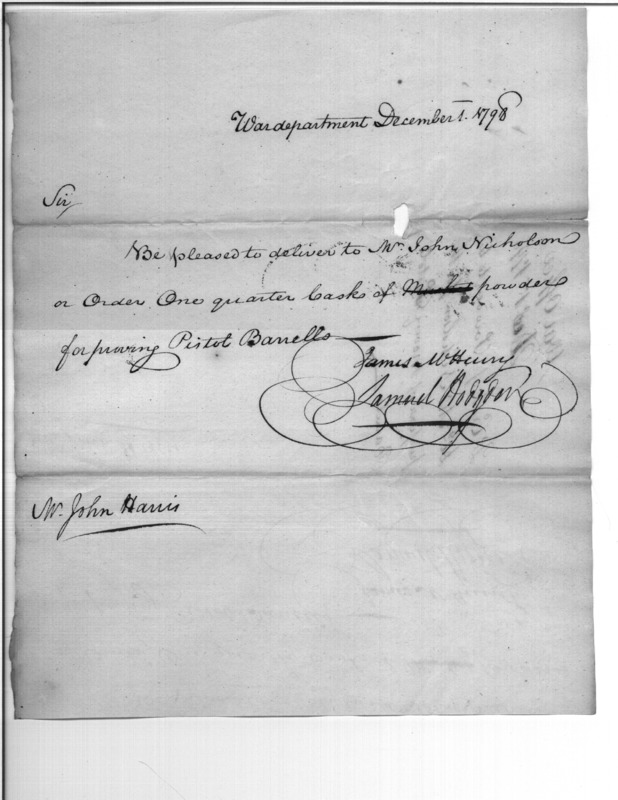 War department December 1. 1798
Sir,
Be pleased to deliver to Mr. John Nicholson
or Order One quarter Casks of powder
for proving Pistol Barrells
James McHenry
Samuel Hodgdon
Mr. John Harris